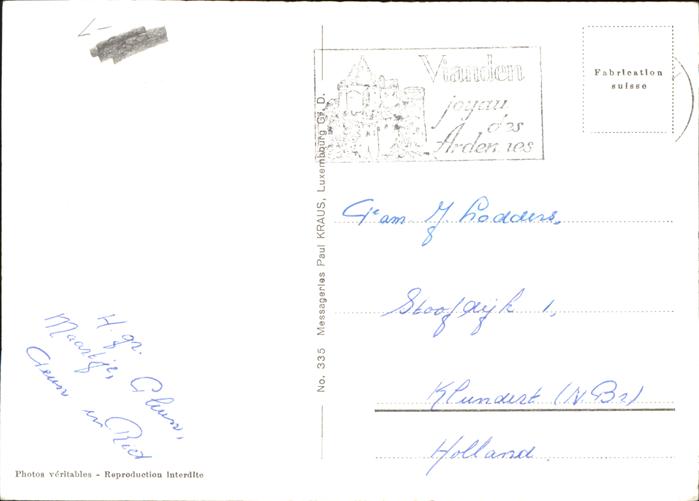 Vianden
joyau
des
Ardennes
Fabrication
suisse
No. 335 Messageries Paul KRAUS, Luxembourg Gr. D.
Fam J Lodders,
Stoofdijk 1,
Klundert (N.Br)
Holland.
H gr.
Maartje,
Teun en Riet
Photos véritables - Reproduction interdite